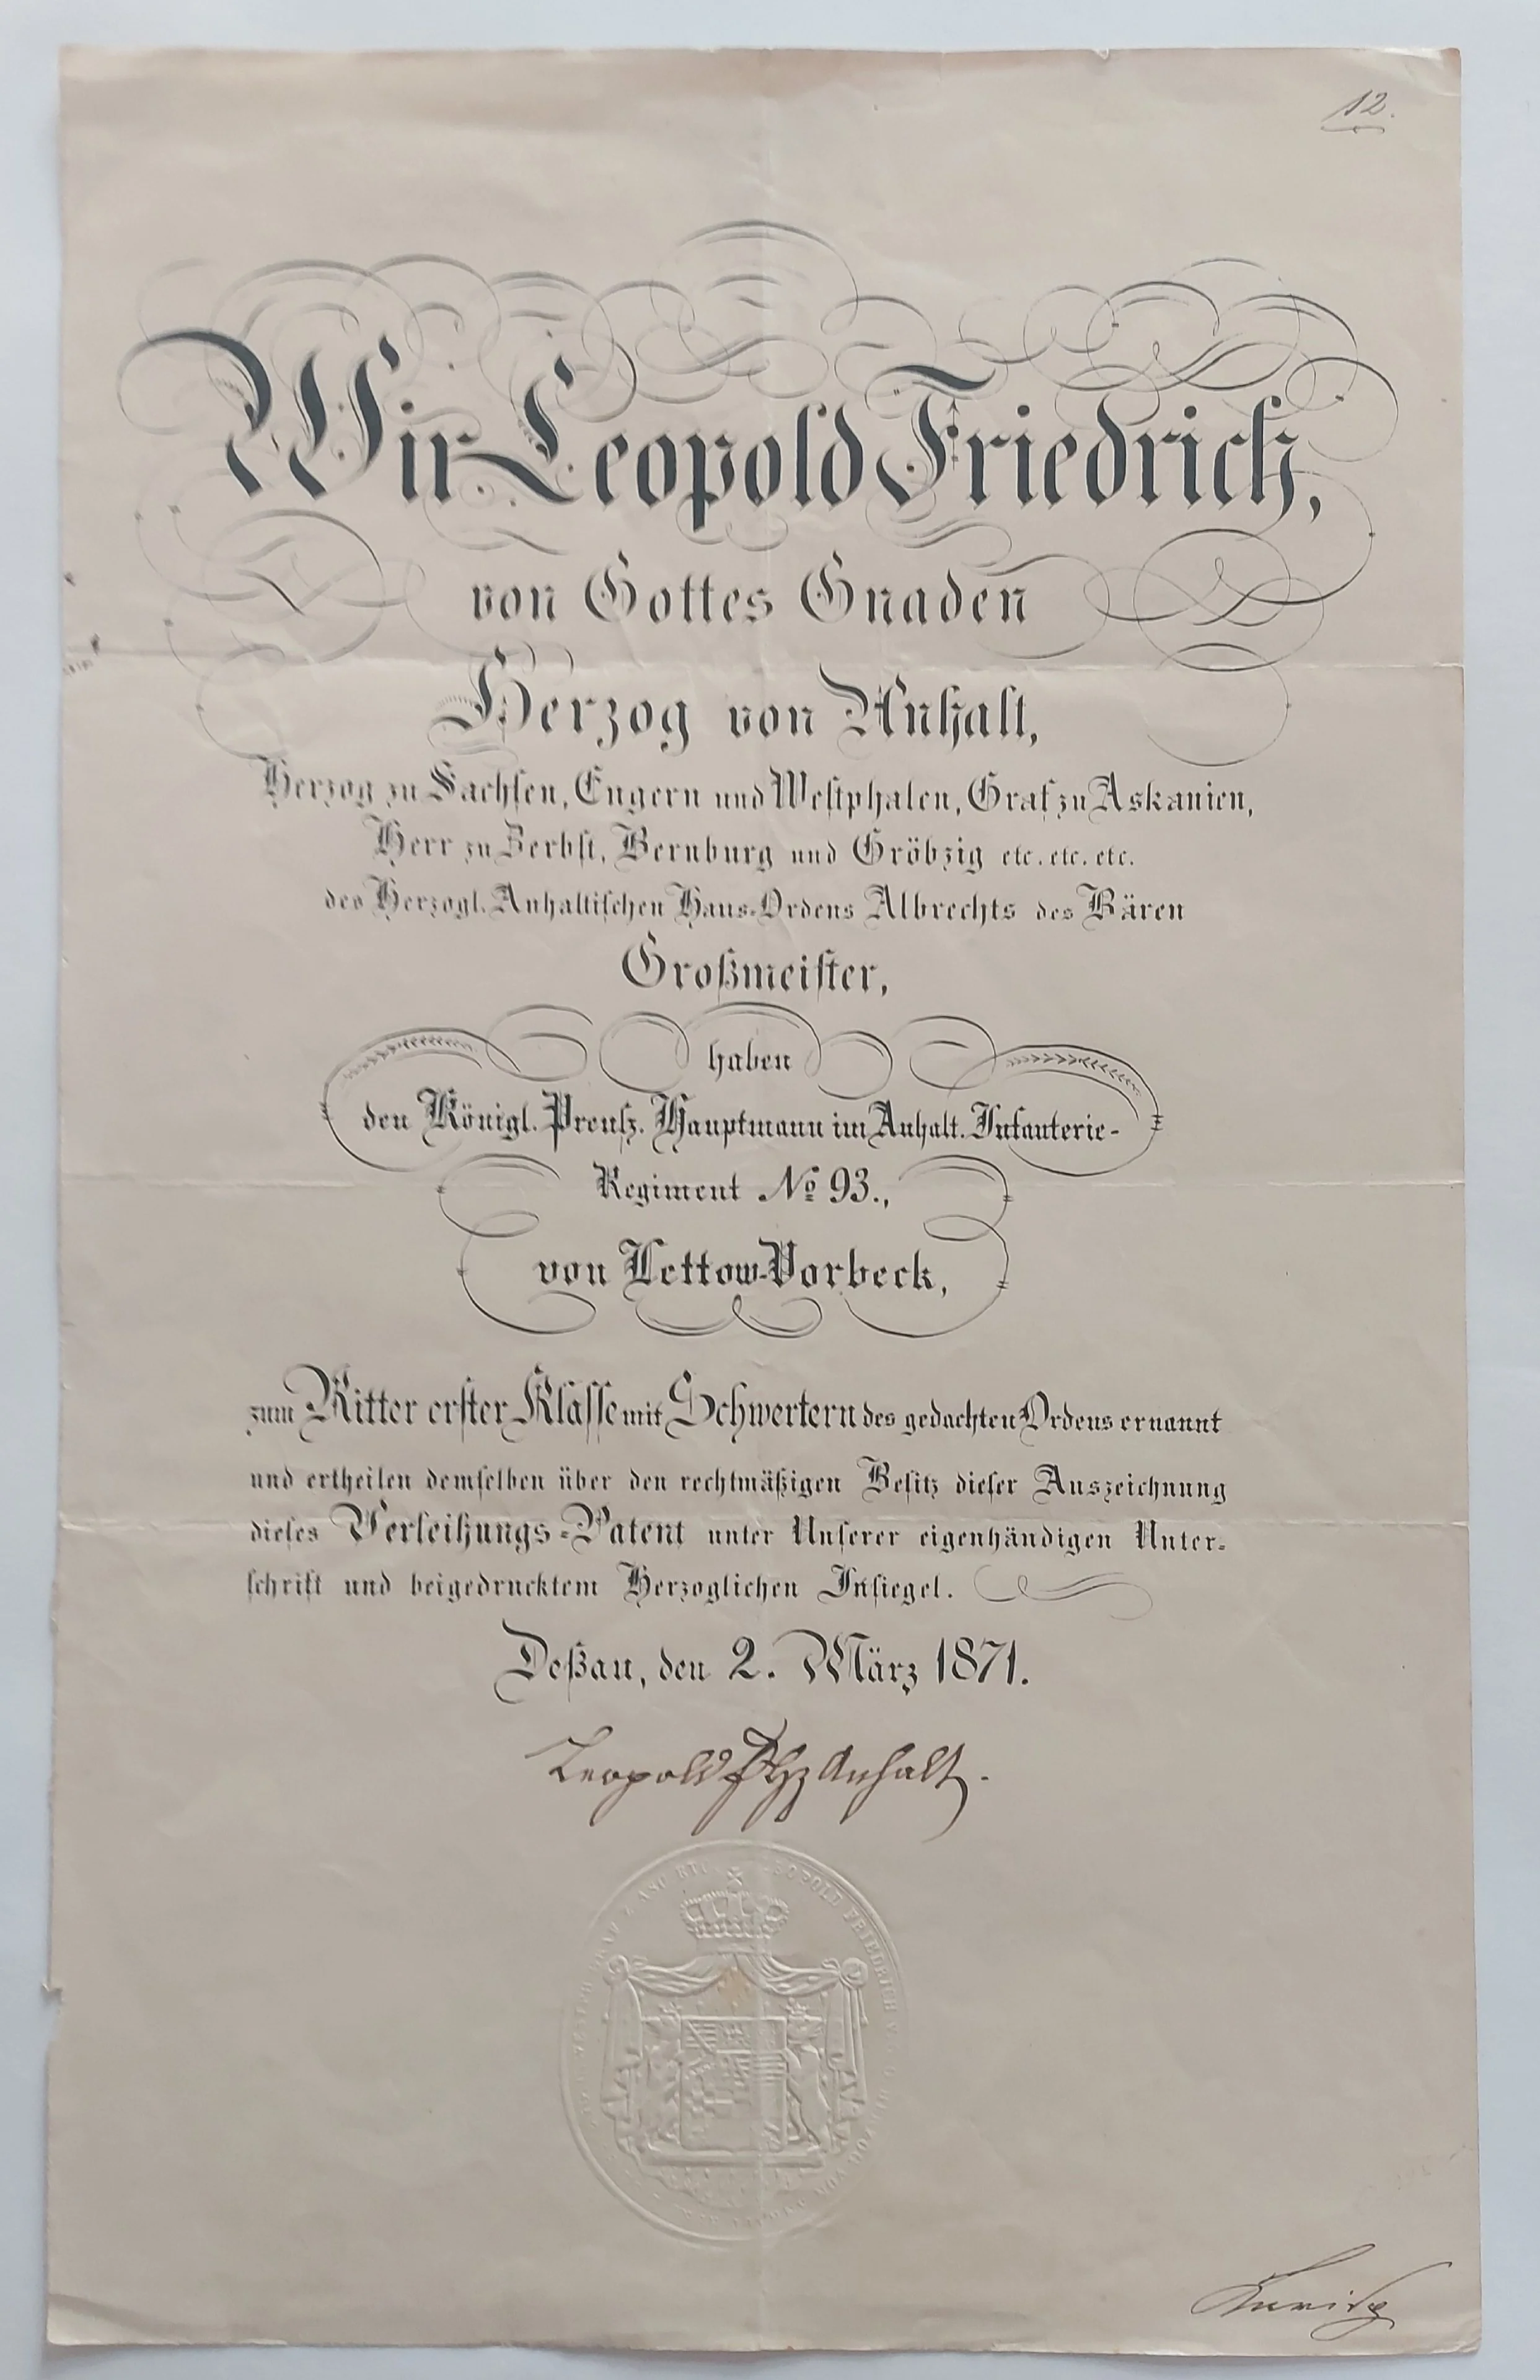 12.
Wir Leopold Friedrich,
von Gottes Gnaden
Herzog von Anhalt,
Herzog zu Sachsen, Engern und Westphalen, Graf zu Askanien,
Herr zu Zerbst, Bernburg und Gröbzig etc. etc. etc.
des Herzogl. Anhaltischen Haus-Ordens Albrechts des Bären
Großmeister,
haben
den Königl. Preuß. Hauptmann im Anhalt. Infanterie-
Regiment No 93.,
von Lettow-Vorbeck,
zum Ritter erster Klasse mit Schwertern des gedachten Ordens ernannt
und ertheilen demselben über den rechtmäßigen Besitz dieser Auszeichnung
dieses Verleihungs-Patent unter Unserer eigenhändigen Unter-
schrift und beigedrucktem Herzoglichen Insiegel.
Deßau, den 2. März 1871.
Leopold F Hz Anhalt.
LEOPOLD FRIEDRICH V. G. G. HERZOG VON ANHALT